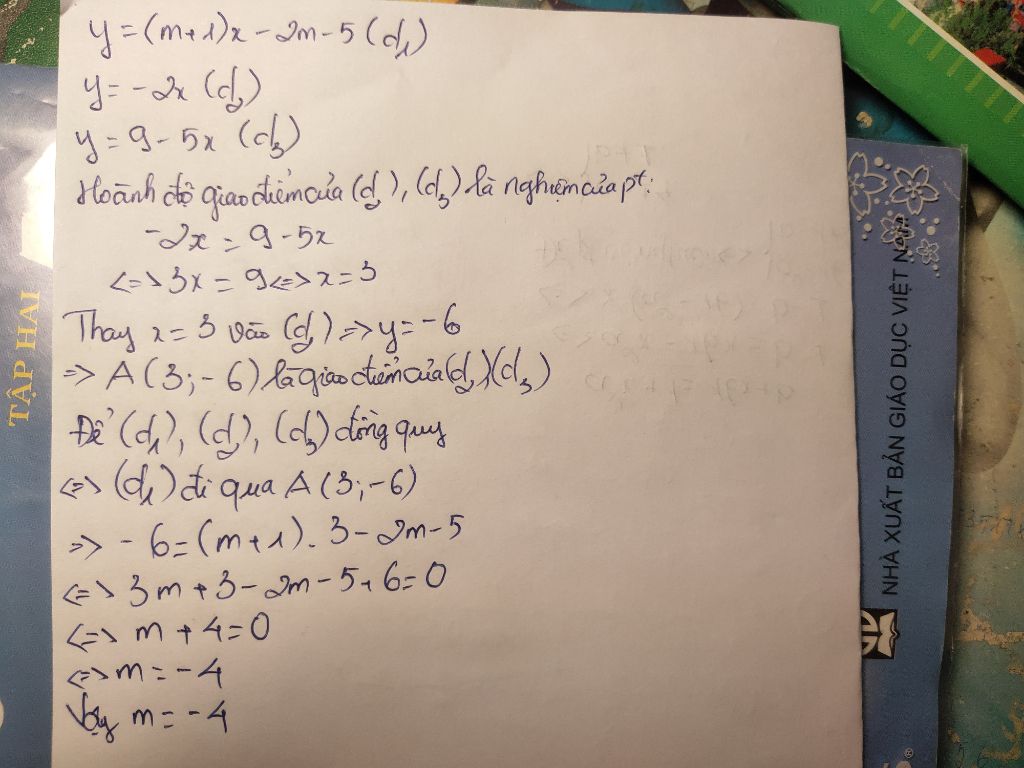 y = (m+1)x - 2m - 5 (d₁)
y = -2x (d₂)
y = 9 - 5x (d₃)
Hoành độ giao điểm của (d₂), (d₃) là nghiệm của pt:
-2x = 9 - 5x
<=> 3x = 9 <=> x = 3
Thay x = 3 vào (d₂) => y = -6
=> A (3; -6) là giao điểm của (d₂), (d₃)
Để (d₁), (d₂), (d₃) đồng quy
<=> (d₁) đi qua A (3; -6)
=> - 6 = (m+1). 3 - 2m - 5
<=> 3m + 3 - 2m - 5 + 6 = 0
<=> m + 4 = 0
<=> m = -4
Vậy m = -4
TẬP HAI
NHÀ XUẤT BẢN GIÁO DỤC VIỆT NAM